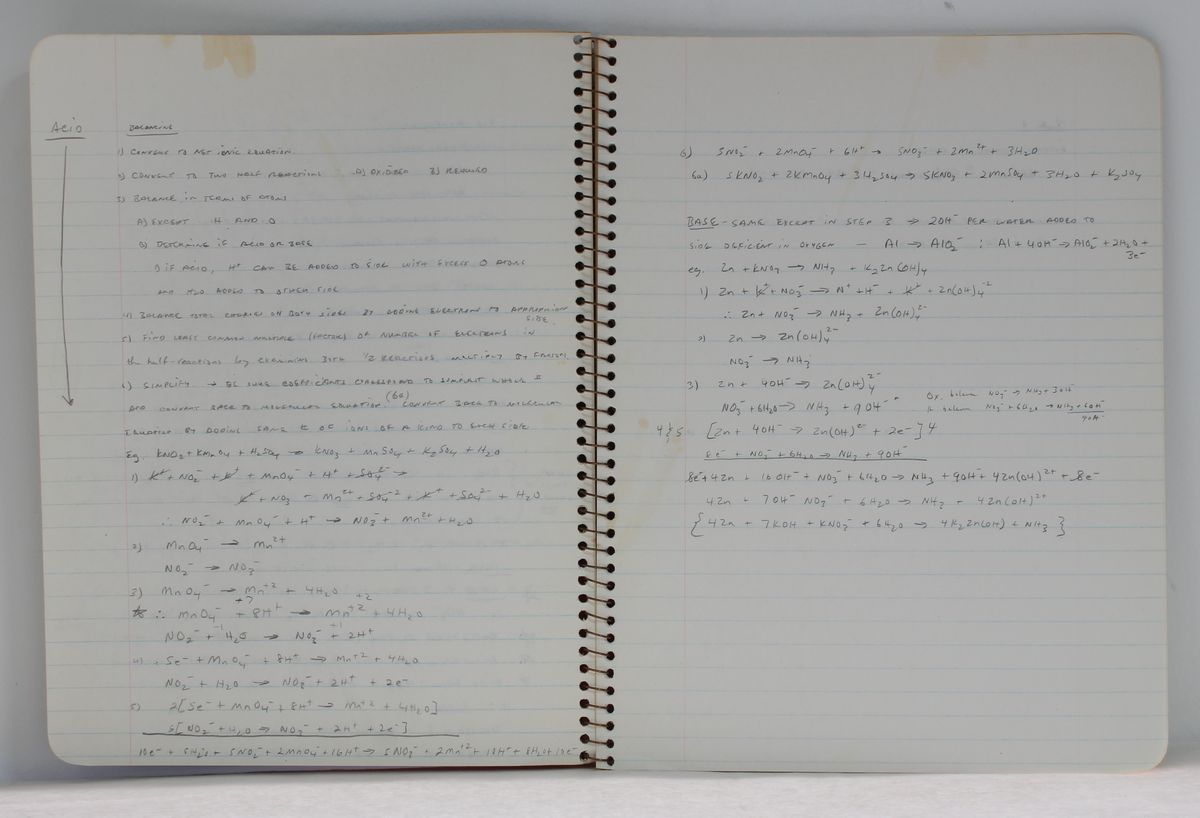 Acid
BALANCING
1) CONVERT TO NET IONIC EQUATION
2) CONVERT TO TWO HALF REACTIONS A) OXIDIZED B) REDUCED
3) BALANCE IN TERMS OF ATOMS
A) EXCEPT H AND O
B) DETERMINE IF ACID OR BASE
1) IF ACID, H⁺ CAN BE ADDED TO SIDE WITH EXCESS O ATOMS
AND H2O ADDED TO OTHER SIDE
4) BALANCE TOTAL CHARGE ON BOTH SIDES BY ADDING ELECTRONS TO APPROPRIATE
SIDE.
5) FIND LEAST COMMON MULTIPLE (FACTOR) OF NUMBER OF ELECTRONS IN
the half-reactions by examining BOTH 1/2 REACTIONS, MULTIPLY BY
6) SIMPLIFY → BE SURE COEFFICIENTS CORRESPOND TO SIMPLEST WHOLE #
AND CONVERT BACK TO MOLECULAR EQUATION (6a) CONVERT BACK TO MOLECULAR
EQUATION BY ADDING SAME # OF IONS OF A KIND TO EACH SIDE
Eg. KNO2 + KMnO4 + H2SO4 → KNO3 + MnSO4 + K2SO4 + H2O
1) K⁺ + NO2⁻ + K⁺ + MnO4⁻ + H⁺ + SO4²⁻ →
K⁺ + NO3 + Mn²⁺ + SO4⁻² + K⁺ + SO4²⁻ + H2O
∴ NO2⁻ + MnO4⁻ + H⁺ → NO3⁻ + Mn²⁺ + H2O
2) MnO4⁻ → Mn²⁺
NO2⁻ → NO3⁻
3) MnO4⁻ → Mn⁺² + 4H2O
+7 +2
∴ MnO4⁻ + 8H⁺ → Mn⁺² + 4H2O
-1 +1
NO2⁻ + H2O → NO3⁻ + 2H⁺
4) 5e⁻ + MnO4⁻ + 8H⁺ → Mn⁺² + 4H2O
NO2⁻ + H2O → NO3⁻ + 2H⁺ + 2e⁻
5) 2[5e⁻ + MnO4⁻ + 8H⁺ → Mn⁺² + 4H2O]
5[NO2⁻ + H2O → NO3⁻ + 2H⁺ + 2e⁻]
10e⁻ + 5H2O + 5NO2⁻ + 2MnO4⁻ + 16H⁺ → 5NO3⁻ + 2Mn⁺² + 10H⁺ + 8H2O + 10e⁻
6) 5NO2⁻ + 2MnO4⁻ + 6H⁺ → 5NO3⁻ + 2Mn²⁺ + 3H2O
6a) 5KNO2 + 2KMnO4 + 3H2SO4 → 5KNO3 + 2MnSO4 + 3H2O + K2SO4
BASE - SAME EXCEPT IN STEP 3 → 2OH⁻ PER WATER ADDED TO
SIDE DEFICIENT IN OXYGEN — Al → AlO2⁻ : Al + 4OH⁻ → AlO2⁻ + 2H2O +
3e⁻
eg. Zn + KNO3 → NH3 + K2Zn(OH)4
1) Zn + K⁺ + NO3⁻ → N⁺ + H⁻ + K⁺ + Zn(OH)4⁻²
∴ Zn + NO3⁻ → NH3 + Zn(OH)4²⁻
2) Zn → Zn(OH)4²⁻
NO3⁻ → NH3
3) Zn + 4OH⁻ → Zn(OH)4²⁻
NO3⁻ + 6H2O → NH3 + 9OH⁻
Ox. balance NO3⁻ → NH3 + 3OH⁻
H balance NO3⁻ + 6H2O → NH3 + 6OH⁻
9OH⁻
4 & 5 [Zn + 4OH⁻ → Zn(OH)²⁻ + 2e⁻] 4
8e⁻ + NO3⁻ + 6H2O → NH3 + 9OH⁻
8e⁻ + 4Zn + 16OH⁻ + NO3⁻ + 6H2O → NH3 + 9OH⁻ + 4Zn(OH)²⁺ + 8e⁻
4Zn + 7OH⁻ NO3⁻ + 6H2O → NH3 + 4Zn(OH)²⁺
{4Zn + 7KOH + KNO3⁻ + 6H2O → 4K2Zn(OH) + NH3}